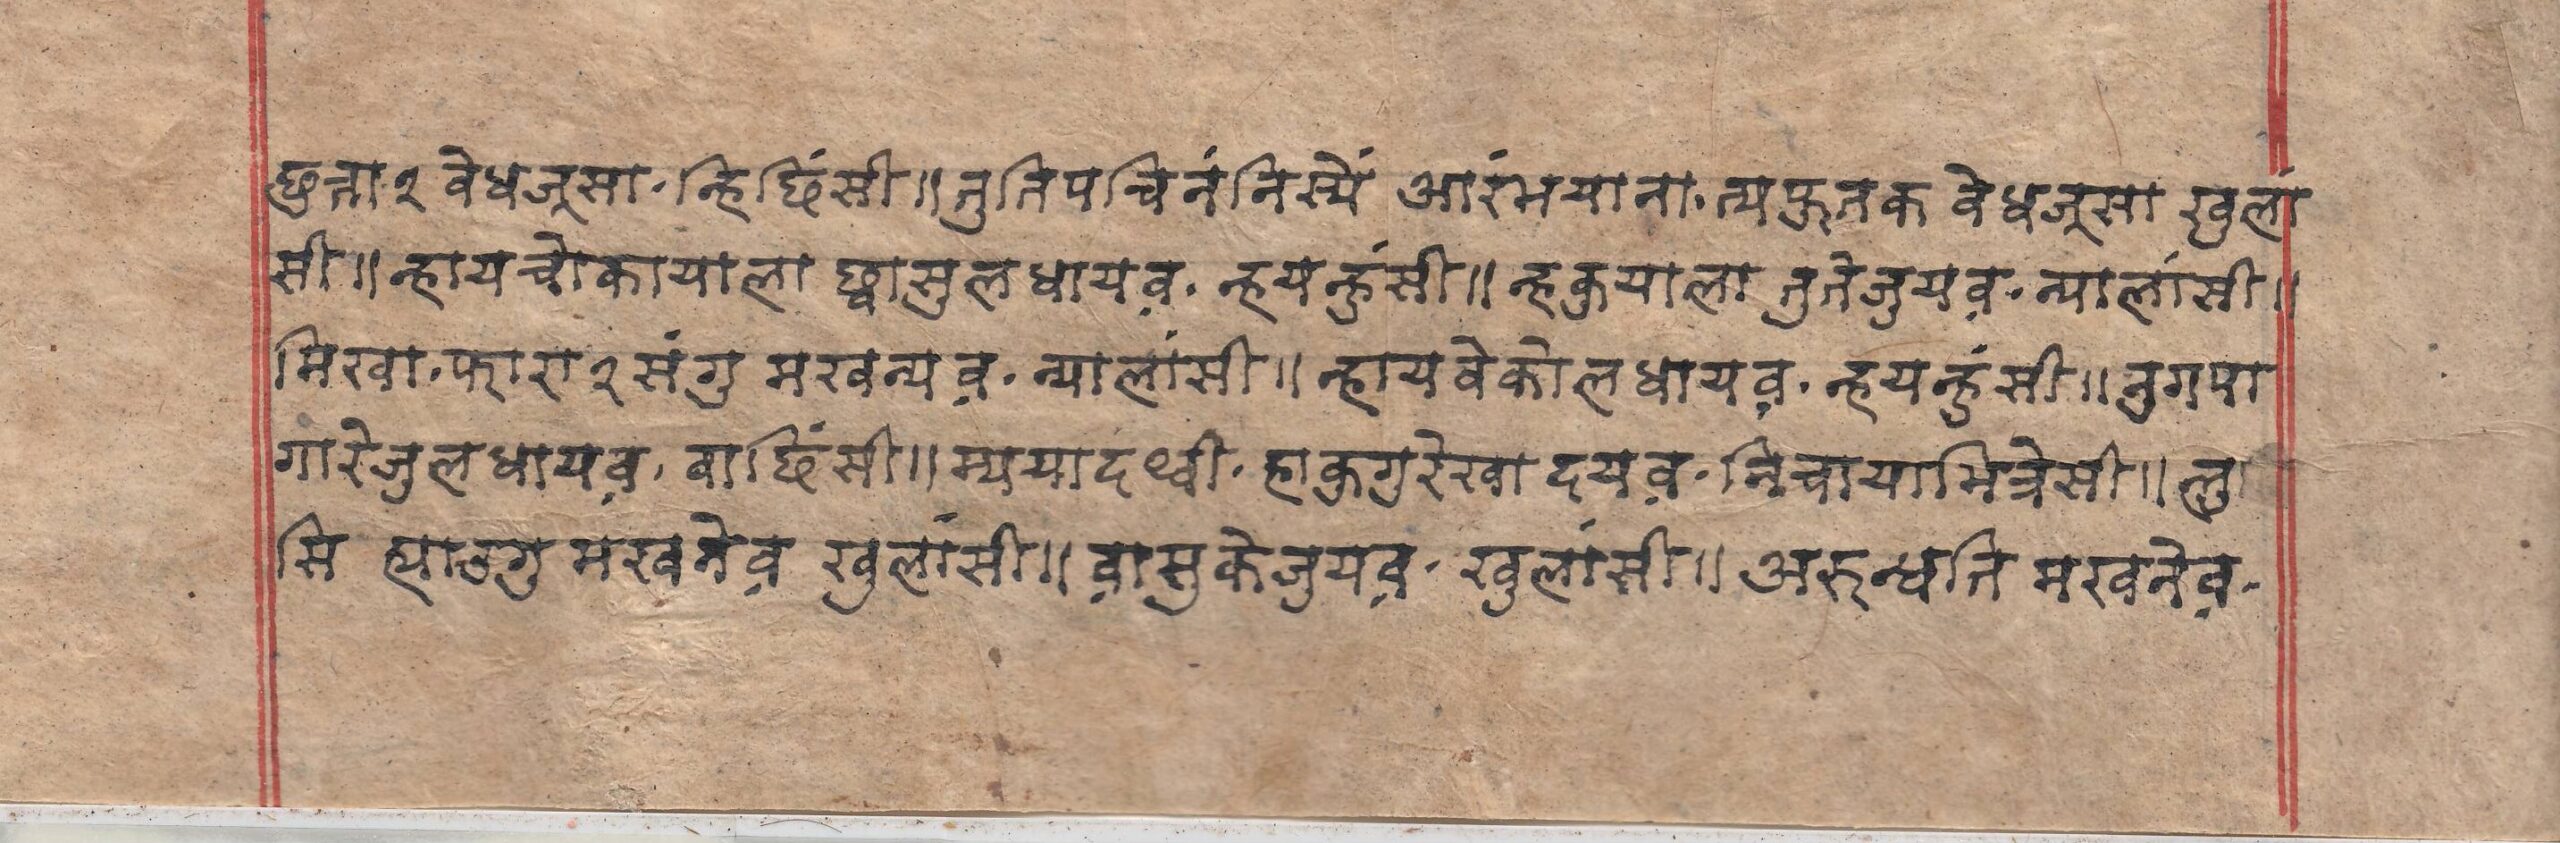 छुत्ता २ वेधजूसा· न्हि छिंसी॥ तुतिपचिनंनिस्यें आरंभयाना· त्यफुतक वेधजूसा खुलां
सी॥ न्हायचोकायाला छ्वासुलधायव़· न्हयन्हुंसी॥ न्हकुयाला तुतेजुयव़· न्यालांसी॥
मिखा· फारा २ संगु मखन्यव़· न्यालांसी॥ न्हायवेकोलधायव़· न्हयन्हुंसी॥ नुगपा
गारेजुलधायव़· बाछिंसी॥ म्ययादथ्वी· हाकुगुरेखा दयव़· निचायामित्रेसी॥ लु
मि ह्याउगु मखनेव़ खुलांसी॥ व़ासुकेजुयव़· खुलांसी॥ अरुन्धति मखनेव़·